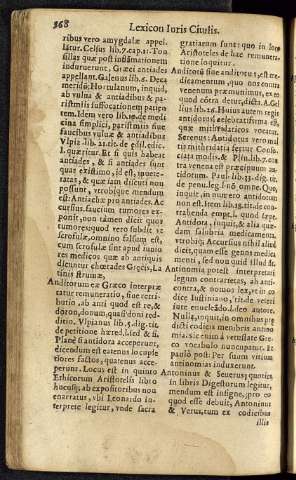 368 Lexicon Iuris Ciuilis.
ribus vero amygdalæ appel-
lãtur. Celsus lib. 7. cap. 12. Ton-
sillas quæ post inflãmationem
induruerunt, Græci antiades
appellant. Galenus lib. 8. Deca
meridis: Hortulanum, inquit,
ab vulua & antiadibus & pa-
ristmiis suffocationem patien
tem. Idem vero lib. de medi
cina simplici, paristmiis siue
faucibus vuluæ & antiadibus
Vlpia. lib. 21. tit. de ædil. edic.
l. quæritur. Et si quis habeat
antiades, & si antiades sunt
quas existimo, id est,
ratas, & quæ iam discuti non
possunt, vtrobique mendum
est: Antiades pro antiades. Ac
cursius, faucium tumores ex-
ponit, non tamen dicit quos
tumores: quod vero subdit vz
scrofulæ, omnino falsum est,
cum scrofulæ sint apud iunio
res medicos quæ ab antiquis
dicuntur chœrades Græcis, La
tinis strumæ,
Antidorum ex Græco interpre
tatur remuneratio, siue retri-
butio, ab anti quod est re, &
doron, donum, quasi doni red-
ditio. Vlpianus lib. 5. dig. tit.
de petitione hæred. l. sed & si.
Planè si antidora acceperunt,
dicendum est eatenus locuple
tiores factos, quatenus acce-
perunt. Locus est in quinto
Ethicorum Aristotelis libro
hocusq; ab expositoribus non
enarratus, vbi Leonardo in-
terprete legitur, vnde sacra
gratiarum sunt: quo in loco
Aristoteles de hac remunera-
tione loquitur.
Antidotũ siue antidotus, est me
dicamentum, quo nos contra
venenum præmunimus, ex eo
quod cõtra detur, dicta. A. Gel
lius lib. 16. Huius autem regis
antidotus celebratissima est,
quæ mithridaticos vocatur.
Serenus: Antidotus vero mul
tis mithridatia fertur Consli-
ciata modis. & Plin. lib. 7. con
tra venena est præcipuum an-
tidotum. Paul. lib. 33. dig. tit.
de penu. leg. l. nõ omne. Quo,
inquit, in numero antidotum
non est. Item lib. 18. tit. de con
trahenda empt. l. quod sæpe.
Antidora, inquit, & alia quæ-
dam salubria medicamenta,
vtrobiq; Accursius nihil aliud
dicit, quam esse genus medica
menti, sed non quid illud sit.
Antinomia potest interpretari
legum contrarietas, ab anti-
contra, & nomos lex, vt in co
dice Iustiniano, tit. de veteri
iure enucleãdo. l. deo autore.
Nulla, inquit, in omnibus præ
dicti codicis membris antino-
mia: sic enim à vetustate Græ-
co vocabulo nuncupatur. Et
paulò post: Per suum vitium
antinomias induxerunt.
Antoninus & Seuerus; quoties
in libris Digestorum legitur,
mendum est insigne, pro eo
quod esse debuit, Antoninus
& Verus, tum ex codicibus
illis